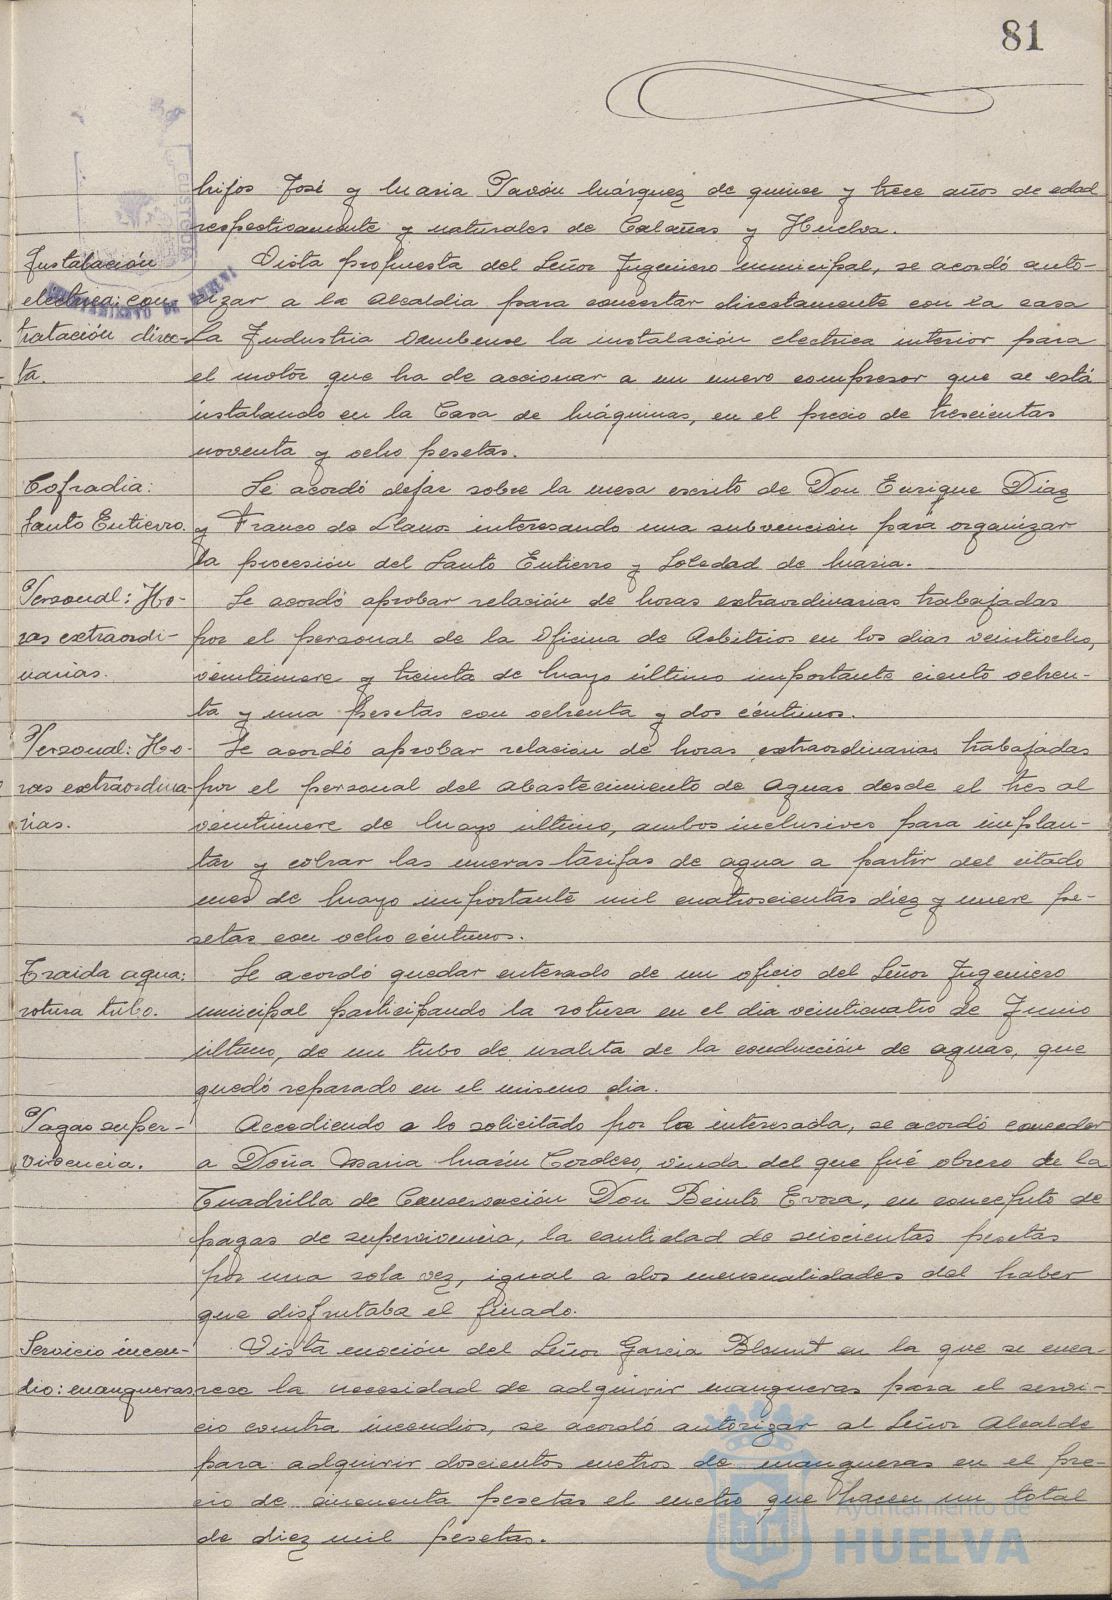 81
hijos José y Maria Pavón Márquez de quince y trece años de edad
respectivamente y naturales de Calañas y Huelva.
Instalación
electrica: con-
tratación direc-
ta.
Vista propuesta del Señor Ingeniero municipal, se acordó auto-
rizar a la Alcaldia para concertar directamente con la casa
La Industria Onubense la instalación electrica interior para
el motor que ha de accionar a un nuevo compresor que se está
instalando en la Casa de Máquinas, en el precio de trescientas
noventa y ocho pesetas.
Cofradia:
Santo Entierro.
Se acordó dejar sobre la mesa escrito de Don Enrique Díaz
y Franco de Llanos interesando una subvención para organizar
la procesión del Santo Entierro y Soledad de Maria.
Personal: Ho-
ras extraordi-
narias.
Se acordó aprobar relación de horas extraordinarias trabajadas
por el personal de la Oficina de Arbitrios en los dias veintiocho,
veintinueve y treinta de Mayo último importante ciento ochen-
ta y una pesetas con ochenta y dos céntimos.
Personal: Ho-
ras extraordina-
rias.
Se acordó aprobar relación de horas extraordinarias trabajadas
por el personal del Abastecimiento de Aguas desde el tres al
veintinueve de Mayo último, ambos inclusives para implan-
tar y cobrar las nuevas tarifas de agua a partir del citado
mes de Mayo importante mil cuatroscientas diez y nueve pe-
setas con ocho céntimos.
Traida agua:
rotura tubo.
Se acordó quedar enterado de un oficio del Señor Ingeniero
municipal participando la rotura en el dia veinticuatro de Junio
último, de un tubo de uralita de la conducción de aguas, que
quedó reparado en el mismo dia.
Pagas super-
vivencia.
Accediendo a lo solicitado por la interesada, se acordó conceder
a Doña Maria Marín Cordero, viuda del que fué obrero de la
Cuadrilla de Conservación Don Benito Evora, en concepto de
pagas de supervivencia, la cantidad de seiscientas pesetas
por una sola vez, igual a dos mensualidades del haber
que disfrutaba el finado.
Servicio incen-
dio: mangueras
Vista moción del Señor Garcia Blount en la que se enca-
rece la necesidad de adquirir mangueras para el servi-
cio contra incendios, se acordó autorizar al Señor Alcalde
para adquirir doscientos metros de mangueras en el pre-
cio de cincuenta pesetas el metro que hacen un total
de diez mil pesetas.
Ayuntamiento de
HUELVA